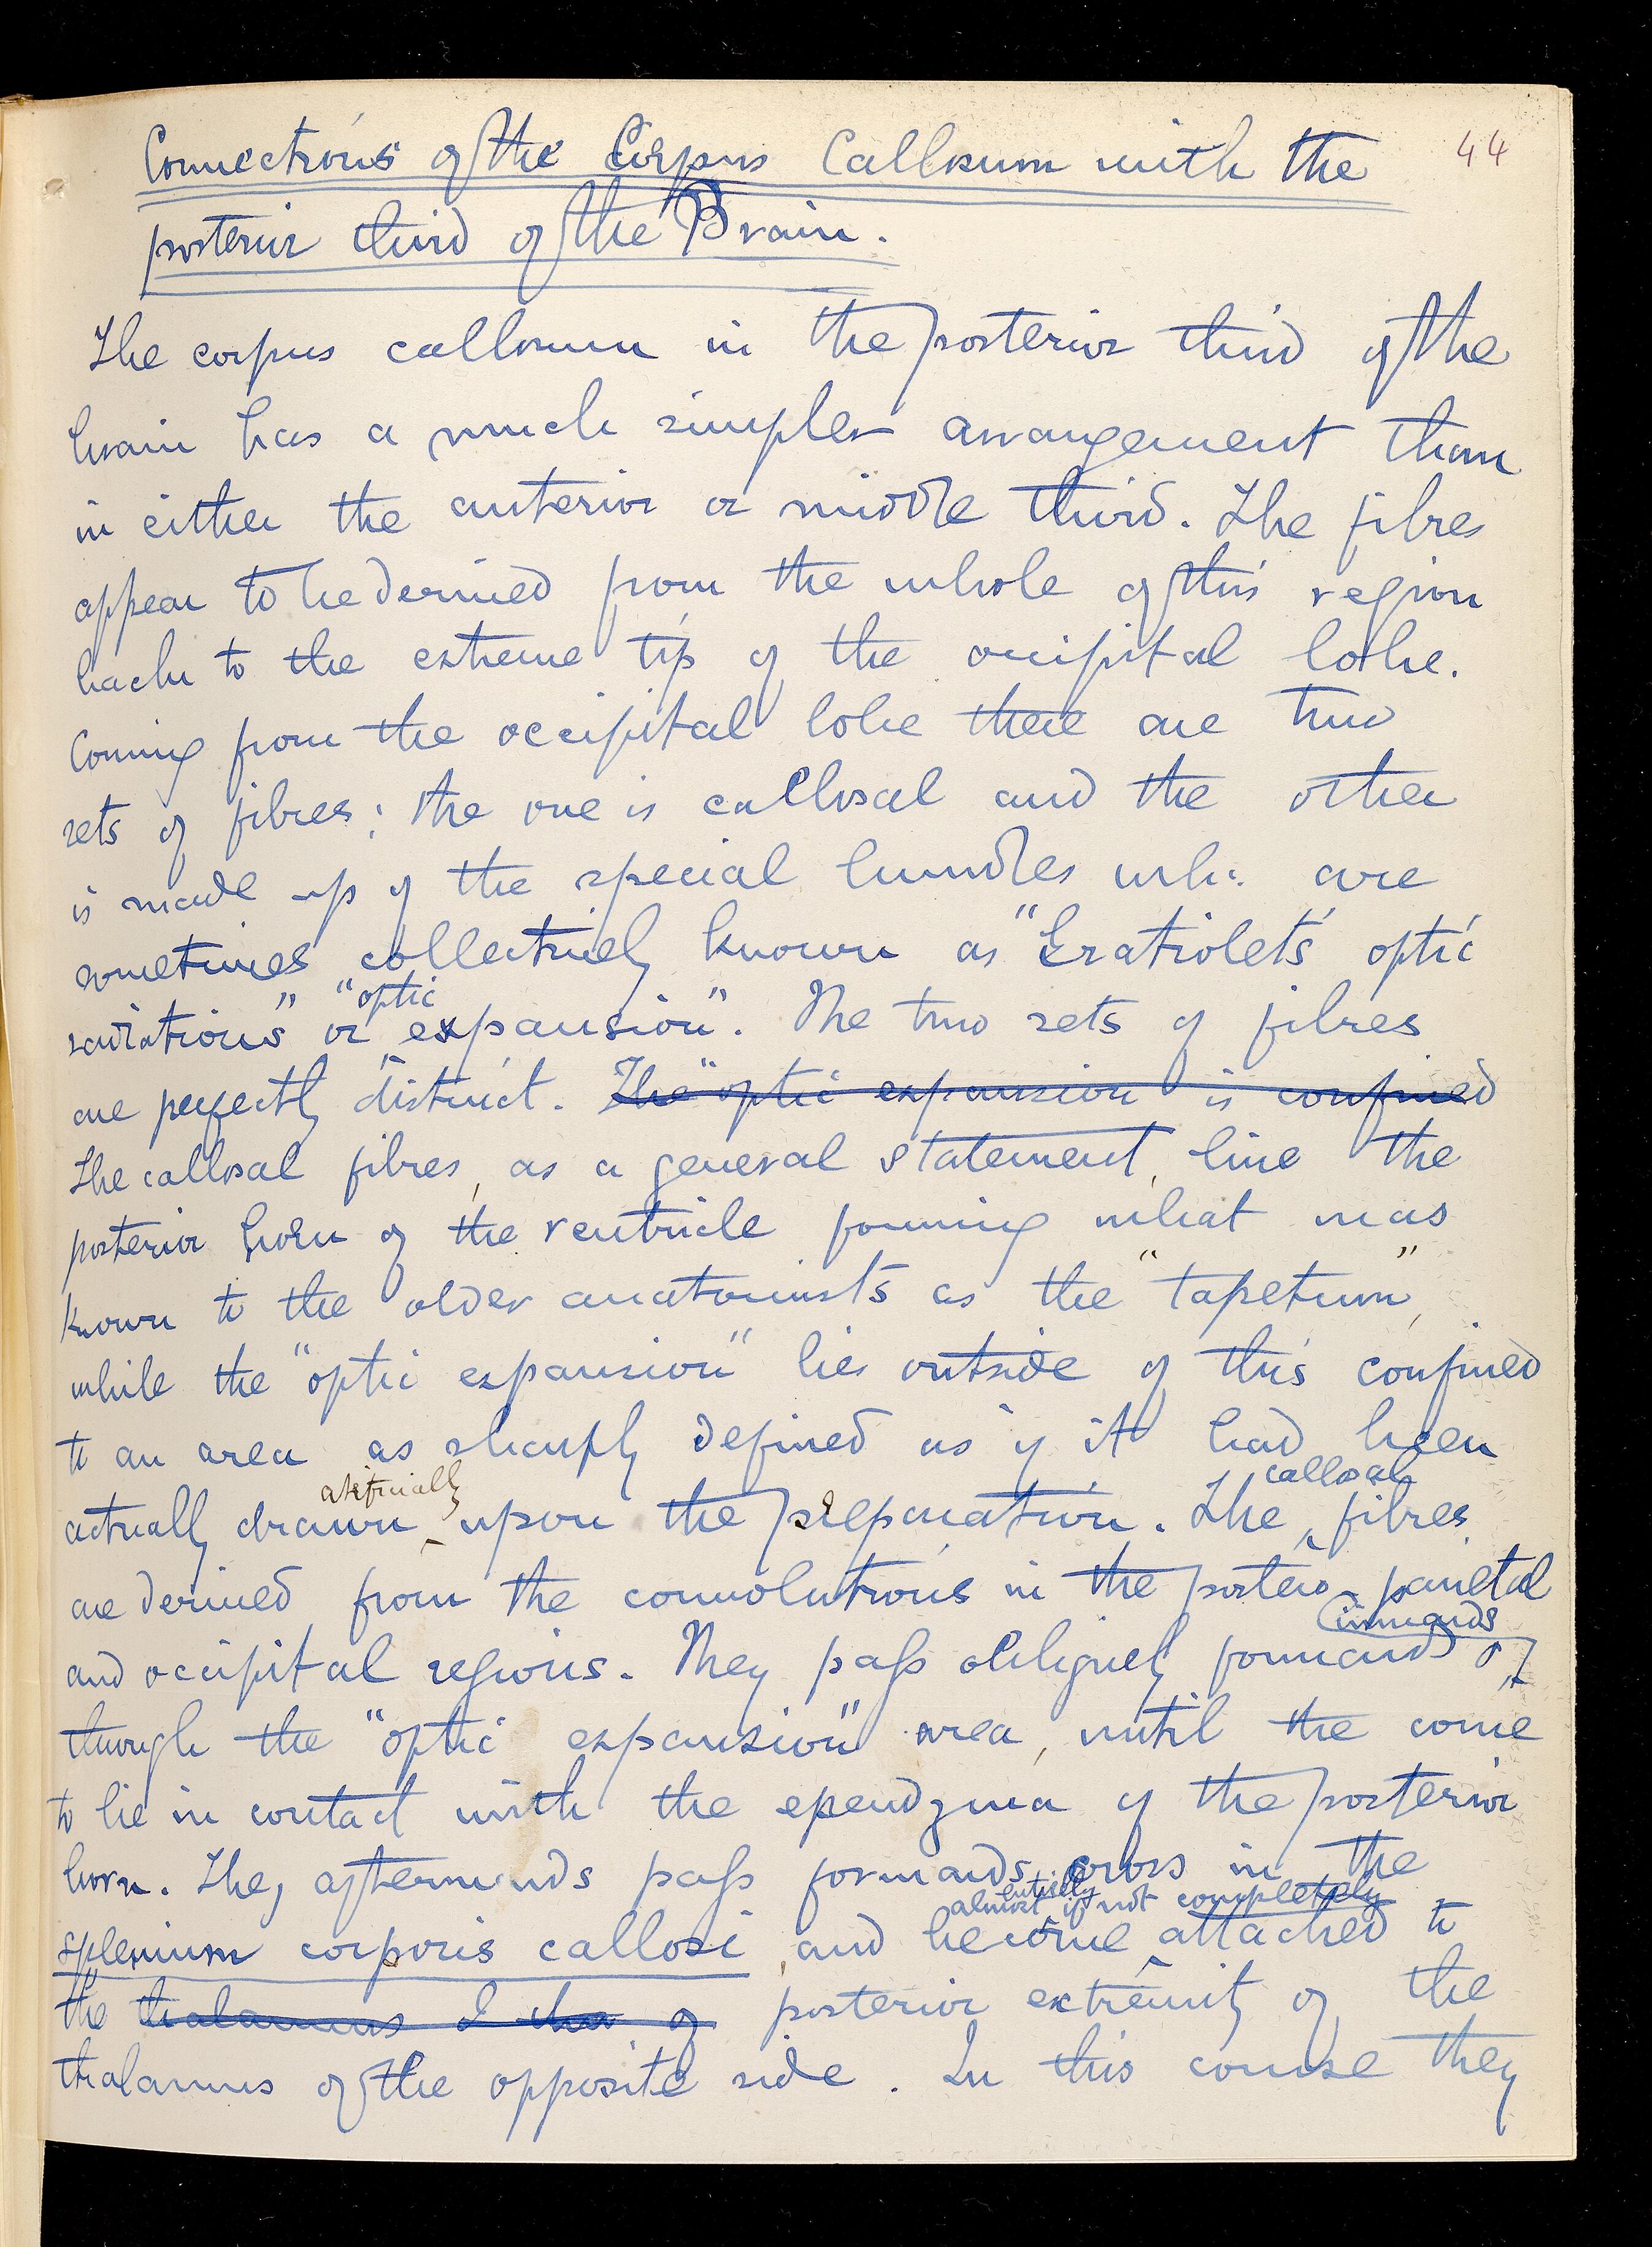 44
Connections of the Corpus Callosum with the
posterior third of the Brain.
The corpus callosum in the posterior third of the
brain has a much simpler arrangement than
in either the anterior or middle third. The fibres
appear to be derived from the whole of this region
back to the extreme tip of the occipital lobe.
Coming from the occipital lobe there are two
sets of fibres; the one is callosal and the other
is made up of the special bundles wh: are
sometimes collectively known as "Gratiolet's optic
radiations" or "optic expansion". The two sets of fibres
are perfectly distinct. The "optic expansion is confined
The callosal fibres, as a general statement, line the
posterior horn of the ventricle forming what was
known to the older anatomists as the "tapetum",
while the "optic expansion" lies outside of this confined
to an area as sharply defined as if it had been
actually drawn artificially upon the preparation. The callosal fibres
are derived from the convolutions in the postero-parietal
and occipital regions. They pass obliquely forwards & inwards
through the "optic expansion" area, until the come
to lie in contact with the ependyma of the posterior
horn. They afterwards pass forwards, cross in the
splenium corporis callosi, and become almost entirely if not completely attached to
the thalamus of posterior extremity of the
thalamus of the opposite side. In this course they